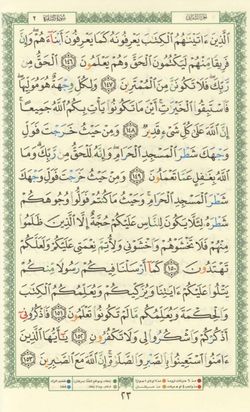 ٱلَّذِينَ ءَاتَيْنَٰهُمُ ٱلْكِتَٰبَ يَعْرِفُونَهُۥ كَمَا يَعْرِفُونَ أَبْنَآءَهُمْ وَإِنَّ
فَرِيقًا مِّنْهُمْ لَيَكْتُمُونَ ٱلْحَقَّ وَهُمْ يَعْلَمُونَ ١٤٦ ٱلْحَقُّ مِن
رَّبِّكَ فَلَا تَكُونَنَّ مِنَ ٱلْمُمْتَرِينَ ١٤٧ وَلِكُلٍّ وِجْهَةٌ هُوَ مُوَلِّيهَا
فَٱسْتَبِقُوا۟ ٱلْخَيْرَٰتِ أَيْنَ مَا تَكُونُوا۟ يَأْتِ بِكُمُ ٱللَّهُ جَمِيعًا
إِنَّ ٱللَّهَ عَلَىٰ كُلِّ شَىْءٍ قَدِيرٌ ١٤٨ وَمِنْ حَيْثُ خَرَجْتَ فَوَلِّ
وَجْهَكَ شَطْرَ ٱلْمَسْجِدِ ٱلْحَرَامِ وَإِنَّهُۥ لَلْحَقُّ مِن رَّبِّكَ وَمَا
ٱللَّهُ بِغَٰفِلٍ عَمَّا تَعْمَلُونَ ١٤٩ وَمِنْ حَيْثُ خَرَجْتَ فَوَلِّ وَجْهَكَ
شَطْرَ ٱلْمَسْجِدِ ٱلْحَرَامِ وَحَيْثُ مَا كُنتُمْ فَوَلُّوا۟ وُجُوهَكُمْ
شَطْرَهُۥ لِئَلَّا يَكُونَ لِلنَّاسِ عَلَيْكُمْ حُجَّةٌ إِلَّا ٱلَّذِينَ ظَلَمُوا۟
مِنْهُمْ فَلَا تَخْشَوْهُمْ وَٱخْشَوْنِى وَلِأُتِمَّ نِعْمَتِى عَلَيْكُمْ وَلَعَلَّكُمْ
تَهْتَدُونَ ١٥٠ كَمَآ أَرْسَلْنَا فِيكُمْ رَسُولًا مِّنكُمْ
يَتْلُوا۟ عَلَيْكُمْ ءَايَٰتِنَا وَيُزَكِّيكُمْ وَيُعَلِّمُكُمُ ٱلْكِتَٰبَ
وَٱلْحِكْمَةَ وَيُعَلِّمُكُم مَّا لَمْ تَكُونُوا۟ تَعْلَمُونَ ١٥١ فَٱذْكُرُونِىٓ
أَذْكُرْكُمْ وَٱشْكُرُوا۟ لِى وَلَا تَكْفُرُونِ ١٥٢ يَٰٓأَيُّهَا ٱلَّذِينَ
ءَامَنُوا۟ ٱسْتَعِينُوا۟ بِٱلصَّبْرِ وَٱلصَّلَوٰةِ إِنَّ ٱللَّهَ مَعَ ٱلصَّٰبِرِينَ ١٥٣
٢٣